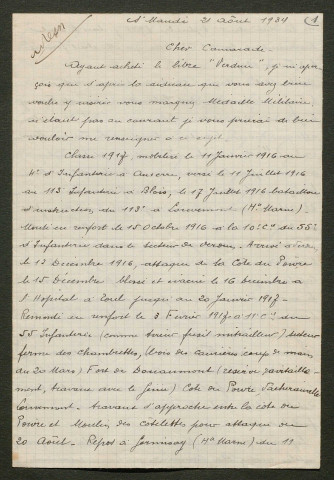 St Mandé 21 Août 1934 (1
Cher Camarade.
Ayant acheté le livre "Verdun", je m'aper-
çois que d'après la
voulu y insérer vous marquez Médaille Militaire,
n'étant pas au courant, je vous prierai de bien
vouloir me renseigner à ce sujet.
Classe 1917, mobilisé le 11 Janvier 1916 au
4e d'Infanterie à Auxerre, versé le 11 Juillet 1916
au 113 Infanterie à Blois, le 17 Juillet 1916 bataillon
d'instruction, du 113e à (Hte Marne).
Monté en renfort le 15 Octobre 1916 à la 10e Cie du 55e
d'Infanterie dans le secteur de Verdun.
le 12 Décembre 1916, attaque de la Cote du Poivre
le 15 Décembre blessé et évacué le 16 Décembre à
l'Hopital à jusqu'au 20 Janvier 1917.
Remonté en renfort le 3 Février 1917 à 11 Cie du
55 Infanterie (comme tireur fusil mitrailleur) secteur
ferme des Chambrettes, Bois des Caurières (coup de main
du 20 Mars) Fort de Douaumont (réserve ravitaille-
ment, travaux avec le Génie) Cote du Poivre, Vacherauville
Louvemont. travaux d'approche entre la côte du
Poivre et Moulin des Cotelettes pour attaque du
20 Août. Repos à (Hte Marne) du 11